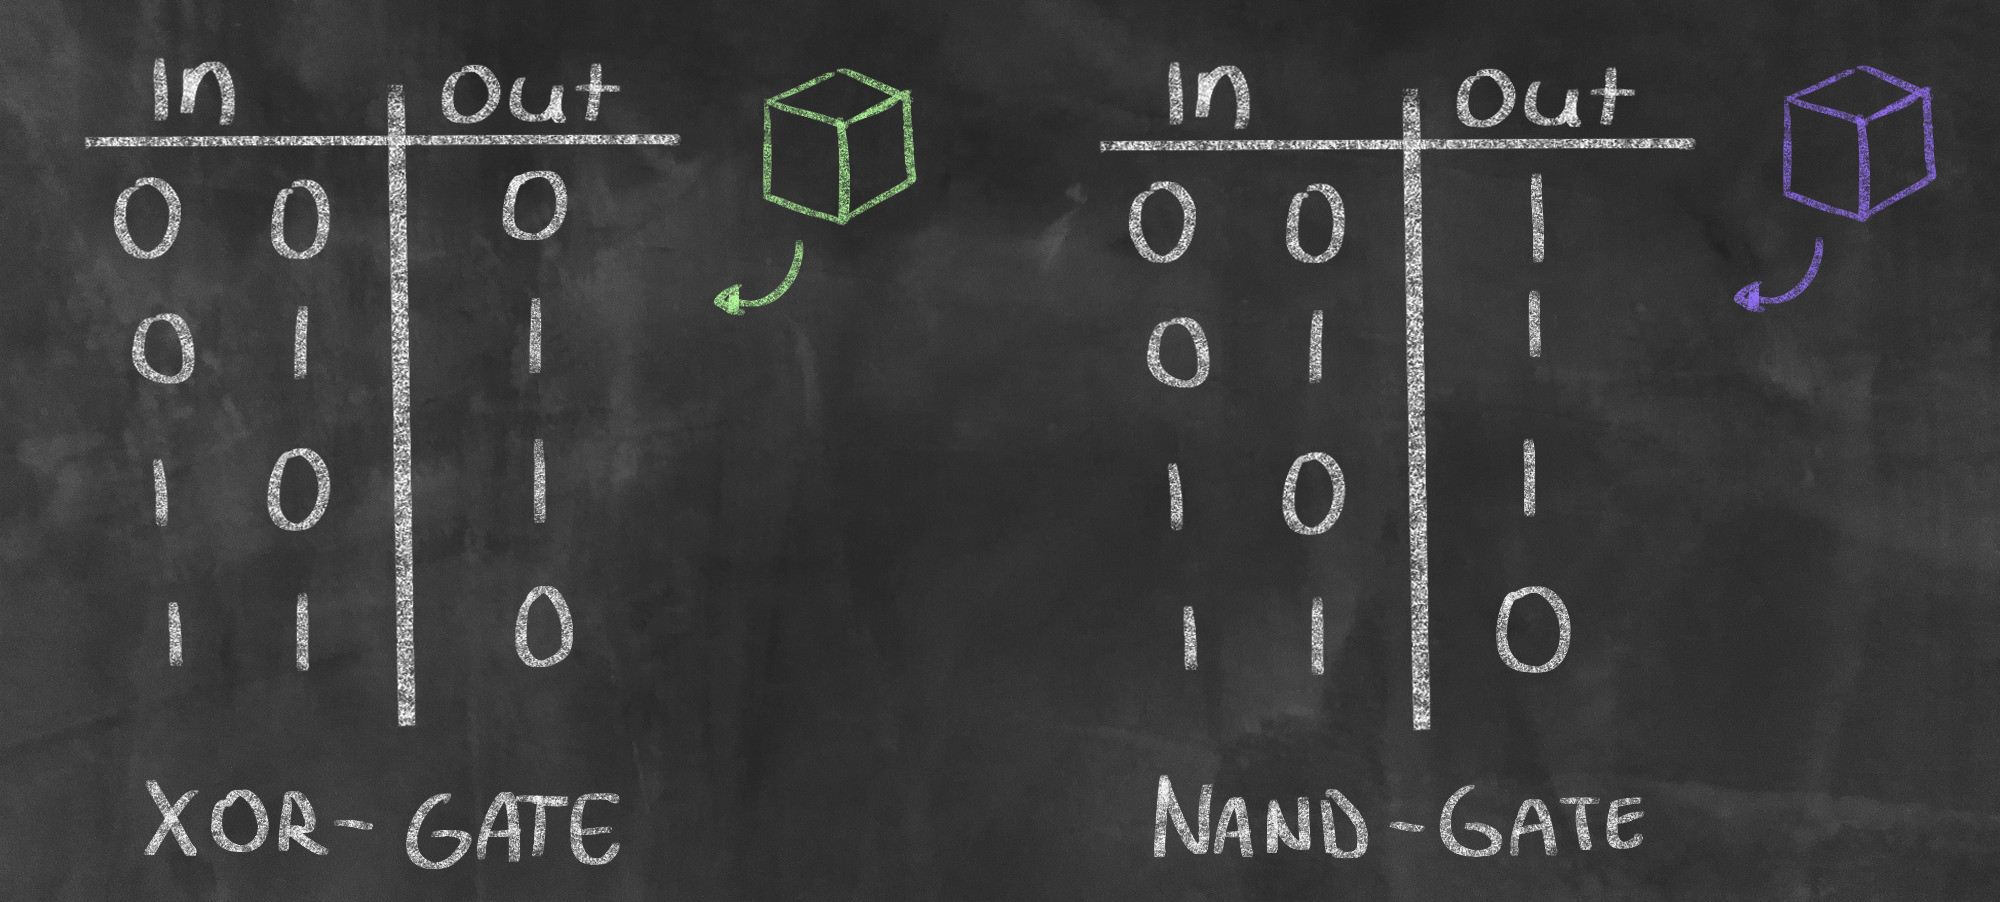 In Out
0 0 0
0 1 1
1 0 1
1 1 0
XOR-GATE
In Out
0 0 1
0 1 1
1 0 1
1 1 0
NAND-GATE